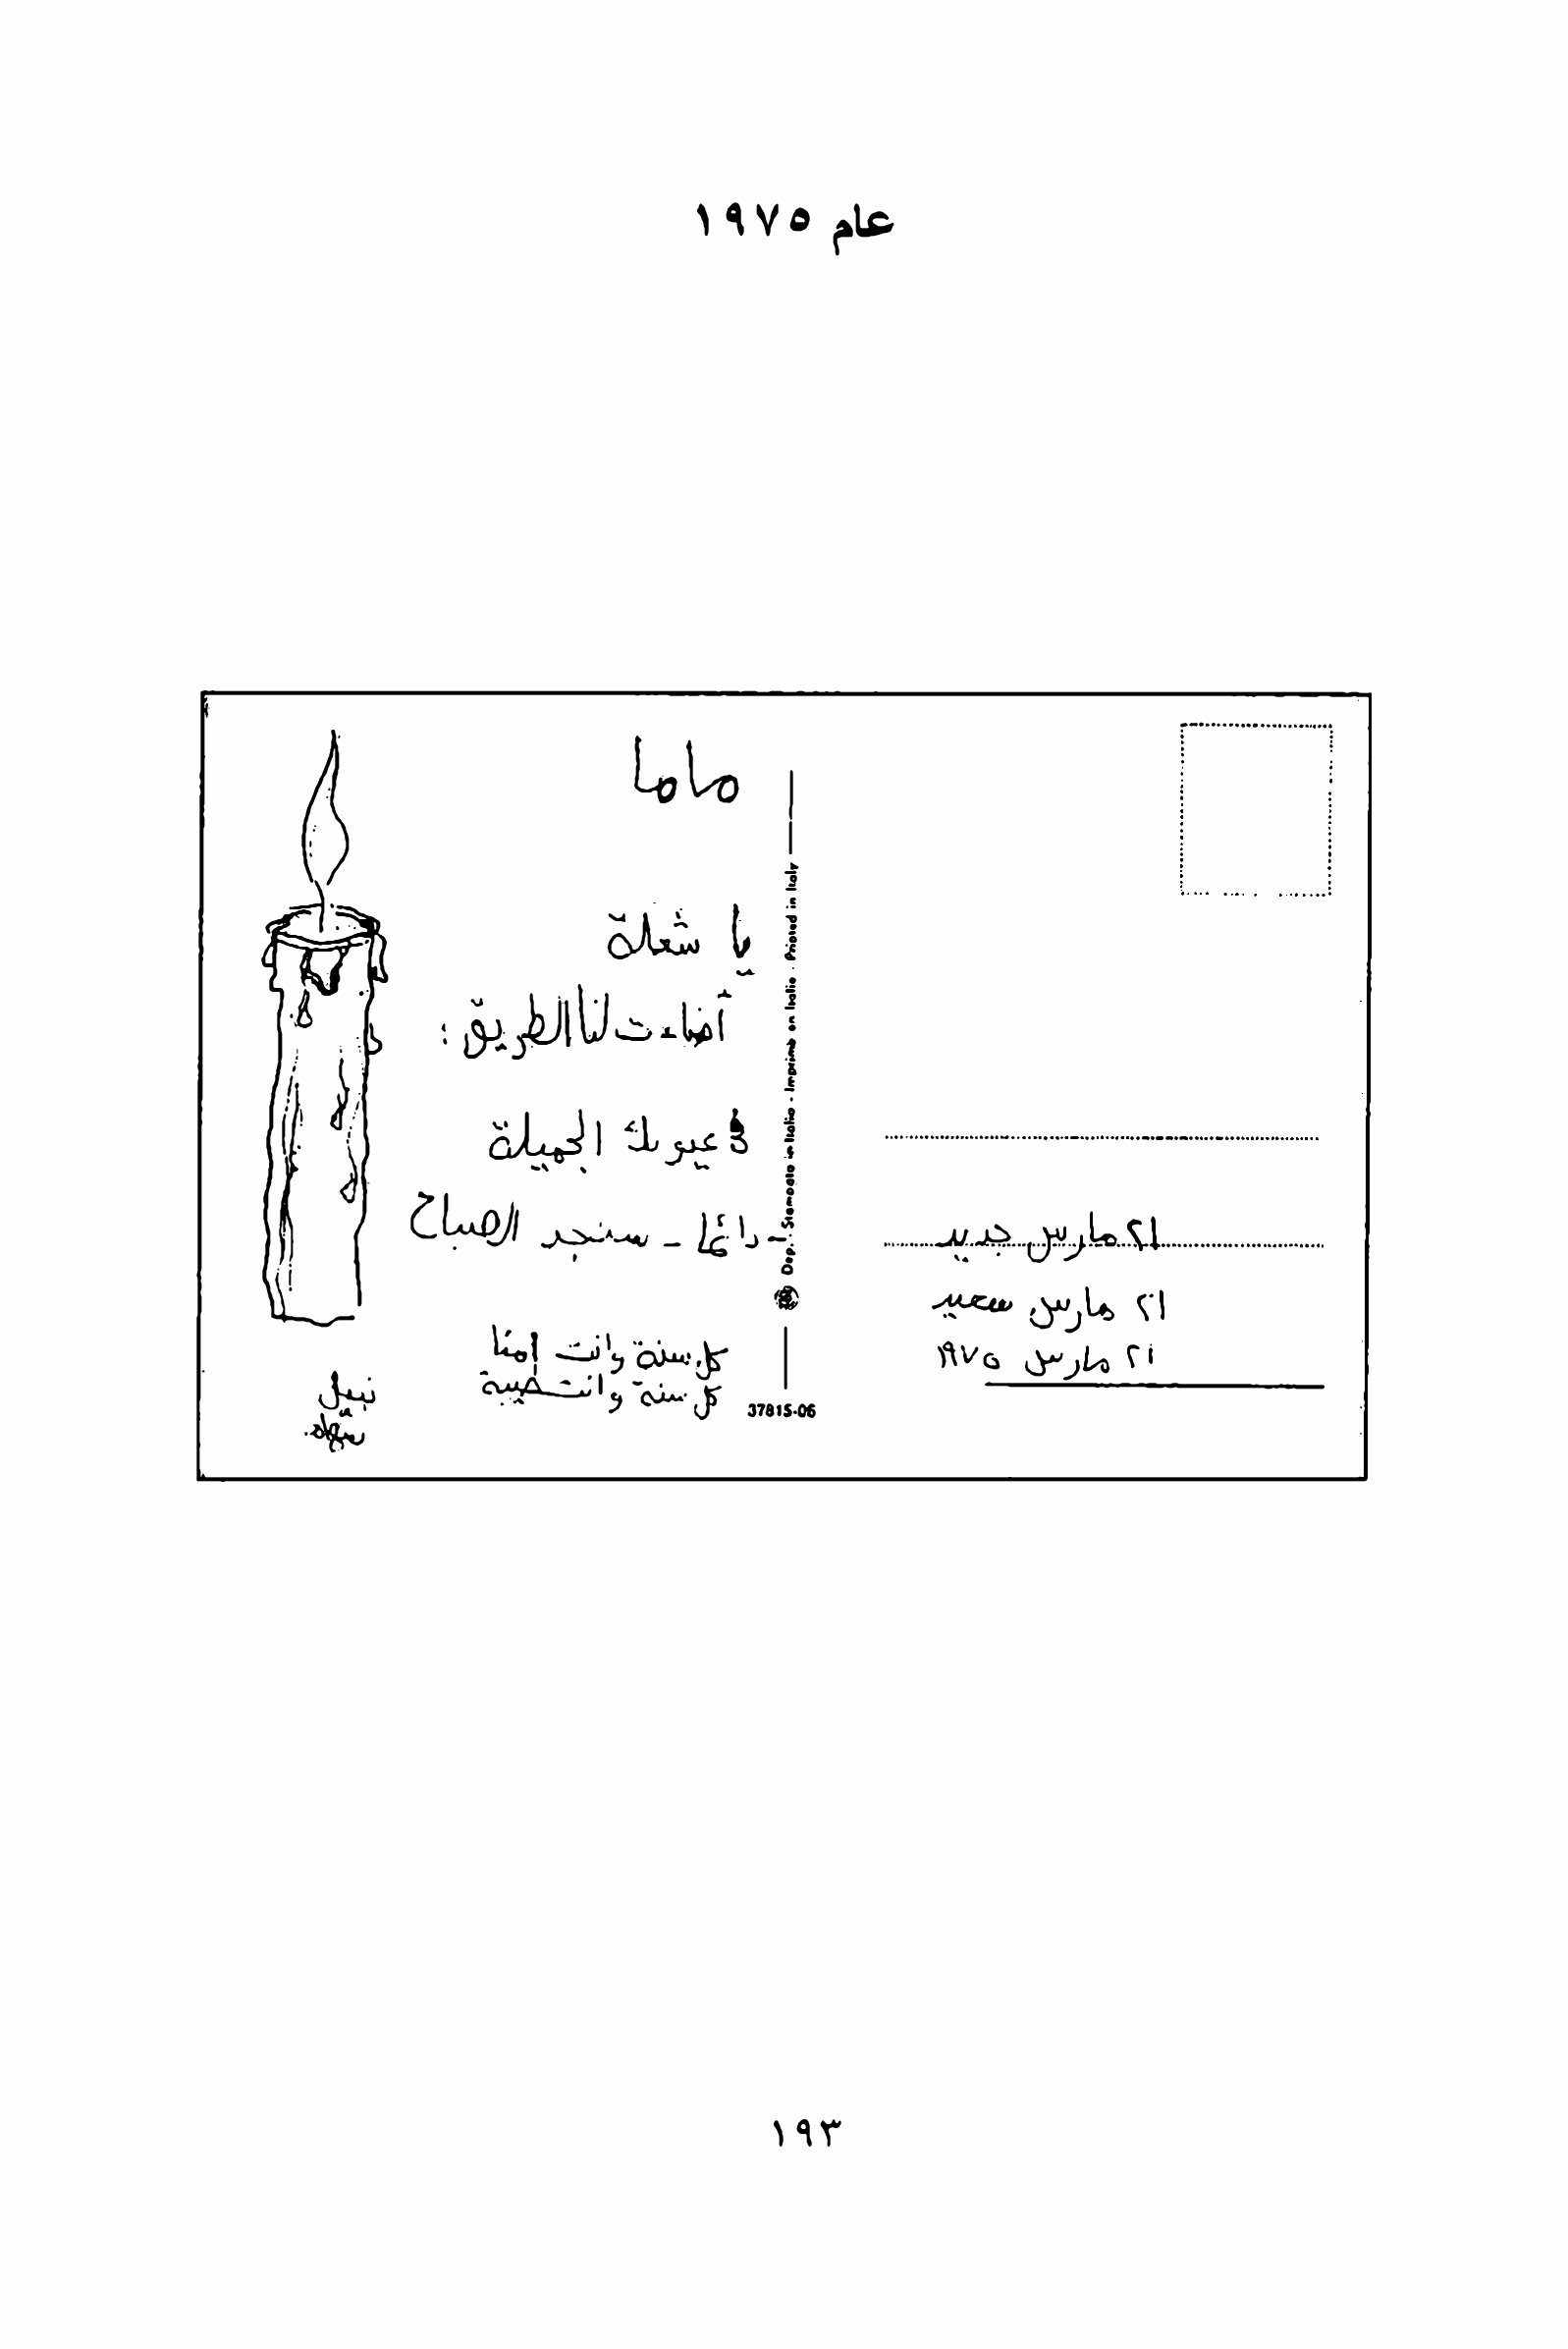 عام ١٩٧٥
ماما
يا شعلة
أضاءت لنا الطريق :
في عيونك الجميلة
- دائما - سنجد الصباح
كل سنة وانت امنا
كل سنة وانت طيبة
نبيل
سهام
Dep. Stampato in Italia - Imprimé en Italie - Printed in Italy
37815-06
٢١ مارس جديد
٢١ مارس سعيد
٢١ مارس ١٩٧٥
١٩٣